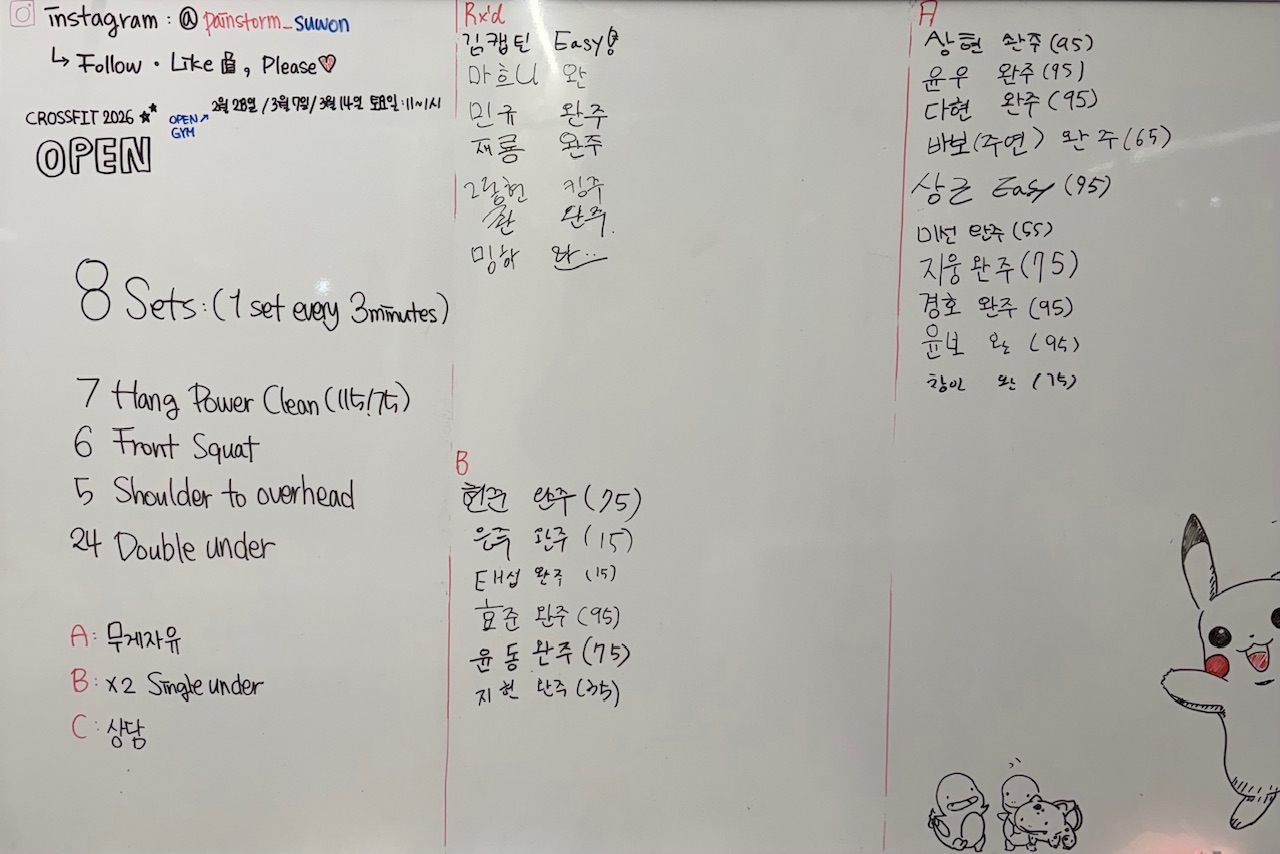 instagram : @ painstorm_suwon
↳ Follow · Like , Please♡
CROSSFIT 2026
OPEN
OPEN↗ GYM
2월 28일 / 3월 7일 / 3월 14일 토요일 : 11~1시
8 Sets : (1 set every 3minutes)
7 Hang Power Clean (115/75)
6 Front Squat
5 Shoulder to overhead
24 Double under
A : 무게자유
B : x2 Single under
C : 상담
Rx'd
김캡틴 Easy!
마흐니 완
민규 완주
재룡 완주
그랑현 킹주
완주
밍하 와..
B
현준 완주 (75)
은주 완주 (15)
태섭 완주 (15)
효준 완주 (95)
윤동 완주 (75)
지현 완주 (35)
A
상현 완주 (95)
윤우 완주 (95)
다현 완주 (95)
바보(주연) 완주 (65)
상근 Easy (95)
미선 완주 (55)
지웅 완주 (75)
경호 완주 (95)
윤보 완 (95)
창인 완 (75)